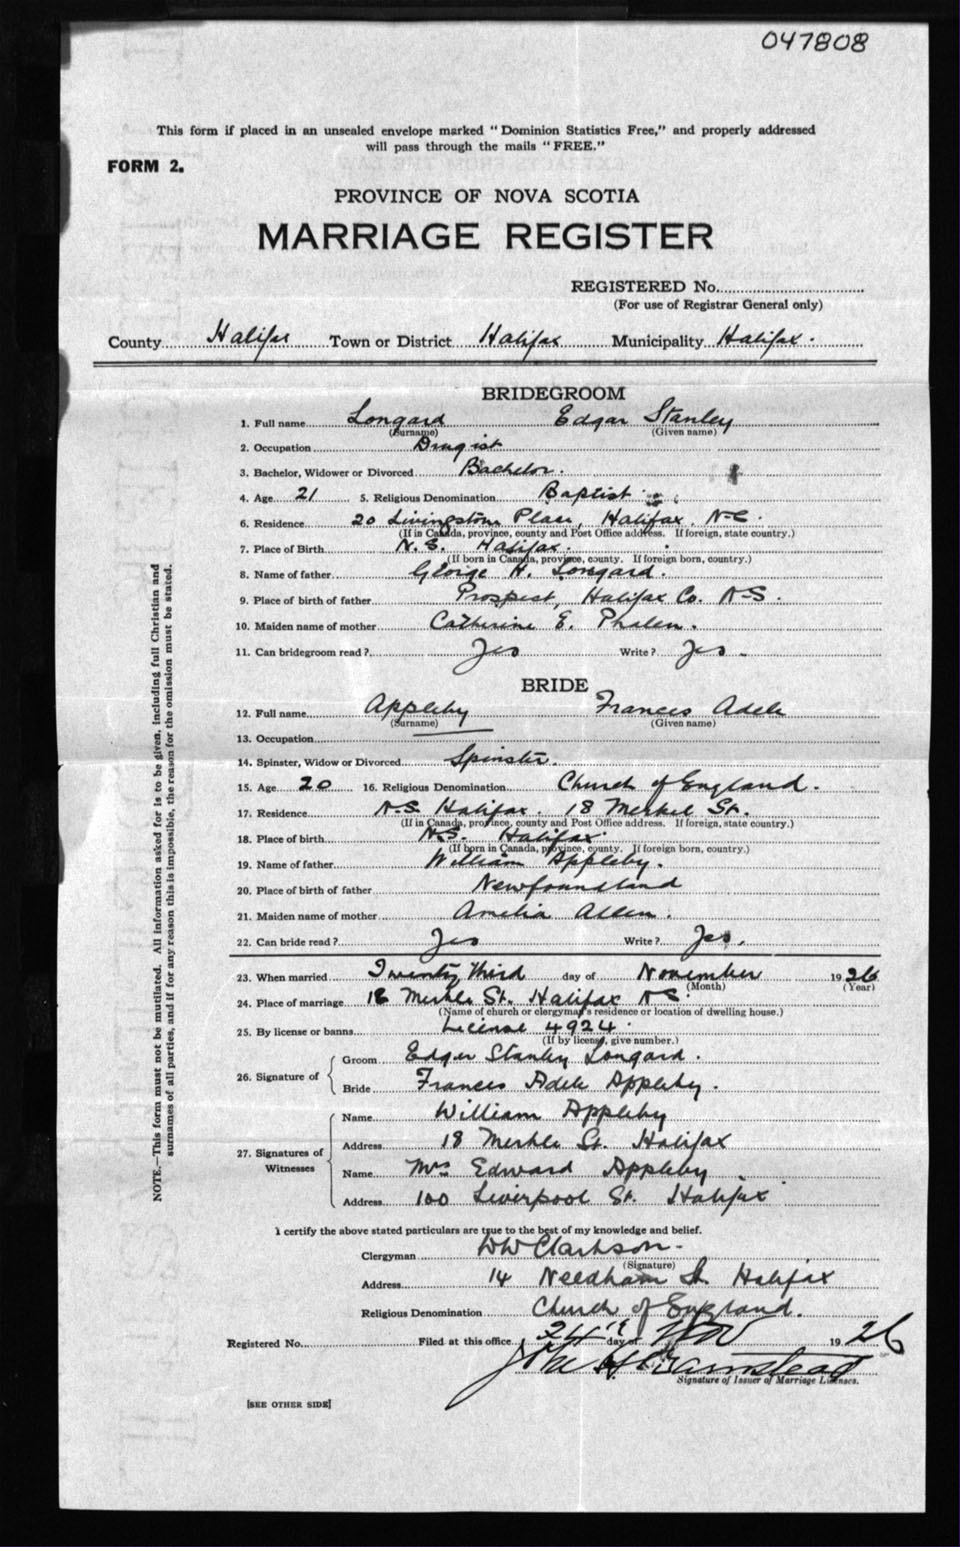 047808
This form if placed in an unsealed envelope marked "Dominion Statistics Free," and properly addressed
will pass through the mails "FREE."
FORM 2.
PROVINCE OF NOVA SCOTIA
MARRIAGE REGISTER
REGISTERED No.
(For use of Registrar General only)
County Halifax Town or District Halifax Municipality Halifax.
BRIDEGROOM
1. Full name Longard Edgar Stanley
(Surname) (Given name)
2. Occupation Drugist
3. Bachelor, Widower or Divorced Bachelor.
4. Age 21 5. Religious Denomination Baptist
6. Residence 20 Livingstone Place, Halifax, N-S.
(If in Canada, province, county and Post Office address. If foreign, state country.)
7. Place of Birth N.S. Halifax.
(If born in Canada, province, county. If foreign born, country.)
8. Name of father George H. Longard.
9. Place of birth of father Prospect, Halifax Co. N-S.
10. Maiden name of mother Catherine E. Phalen.
11. Can bridegroom read? Yes Write? Yes.
BRIDE
12. Full name Appleby Frances Adele
(Surname) (Given name)
13. Occupation
14. Spinster, Widow or Divorced Spinster.
15. Age 20 16. Religious Denomination Church of England.
17. Residence N.S. Halifax. 18 Merkel St.
(If in Canada, province, county and Post Office address. If foreign, state country.)
18. Place of birth N.S. Halifax.
(If born in Canada, province, county. If foreign born, country.)
19. Name of father William Appleby.
20. Place of birth of father Newfoundland
21. Maiden name of mother Amelia Allen.
22. Can bride read? Yes Write? Yes.
23. When married Twenty Third day of November 1926
(Month) (Year)
24. Place of marriage 18 Merkle St. Halifax N-S.
(Name of church or clergyman's residence or location of dwelling house.)
25. By license or banns License 4924.
(If by license, give number.)
26. Signature of
Groom Edgar Stanley Longard.
Bride Frances Adele Appleby.
27. Signatures of Witnesses
Name William Appleby
Address 18 Merkle St. Halifax
Name Mrs Edward Appleby
Address 100 Liverpool St. Halifax
I certify the above stated particulars are true to the best of my knowledge and belief.
Clergyman WW Clarkson.
(Signature)
Address 14 Needham St. Halifax
Religious Denomination Church of England.
Registered No. Filed at this office, 24th day of Nov 1926
John H Barnstead
Signature of Issuer of Marriage Licenses.
[SEE OTHER SIDE]
NOTE.—This form must not be mutilated. All information asked for is to be given, including full Christian and
surnames of all parties, and if for any reason this is impossible, the reason for the omission must be stated.